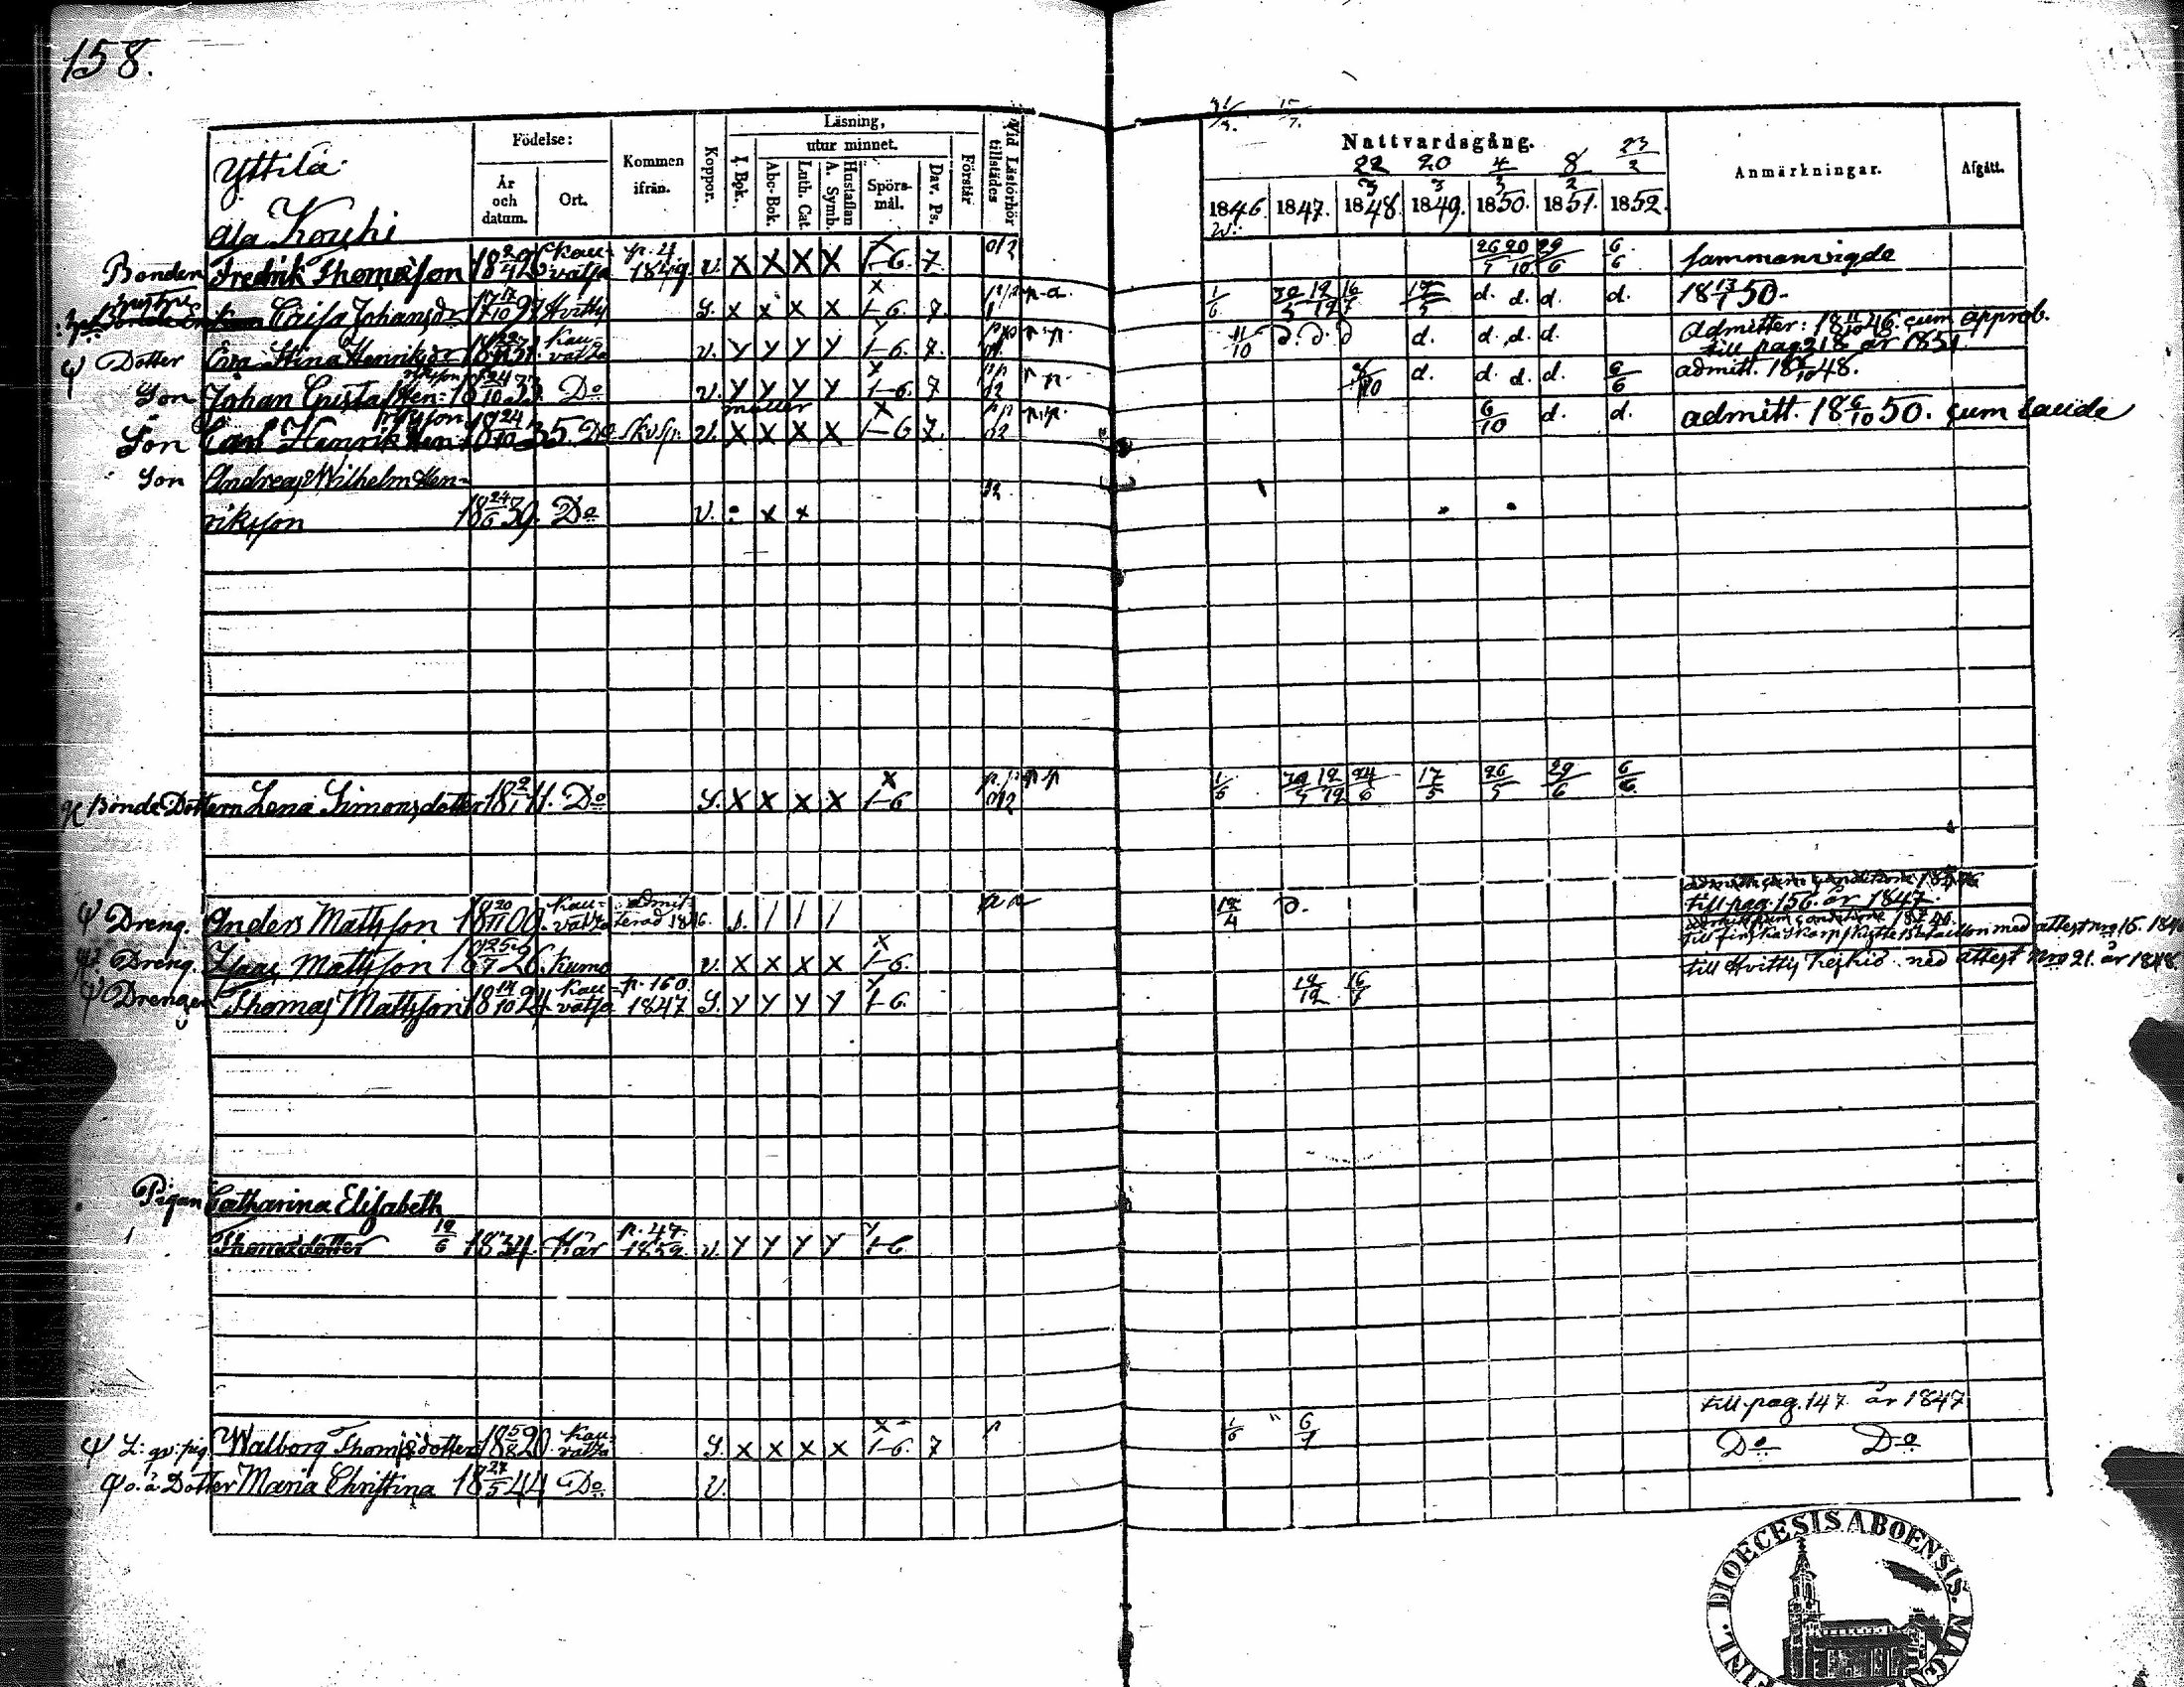 158.
Yttilä
Ala Kouhi
Födelse:
År och datum.
Ort.
Kommen ifrån.
Koppor.
Läsning,
utur minnet.
I. Bok.
Abc-Bok.
Luth. Cat.
A. Symb. Hustaflan
Spörsmål.
Dav. Ps.
Förstår
Vid Läsförhör tillstädes
Nattvardsgång.
22/3 20/3 4/3 8/2 23/2
1846. 1847. 1848. 1849. 1850. 1851. 1852.
Anmärkningar.
Afgått.
Bonden Fredrik Thomasson Kauvatsa p. 4. 1849. v. X X X X 1-6. 7. 26/5 20/10 29/6 6/6 sammanvigde
hustru Caisa Johansdr 17 17/10 97 Hvittis S. x x x x 1-6. 7. 1/6 d. d. d. d. 18 13/1 50.
Dotter Eva Stina Henriksdr Kauvatsa v. Y Y Y Y 1-6. 7. 11/10 d. d. d. d. d. d. d. Admitter: 18 11/10 46. cum approb.
till pag 218 år 1851.
Son Johan Gustaf Henriksson 18 24/10 33 Do v. Y Y Y Y 1-6 7 d. d. d. d. 6/6 admitt. 18 8/10 48.
Son Carl Henrik Henriksson 18 24/10 35 Do v. X X X X 1-6 7. 6/10 d. d. admitt. 18 6/10 50. cum laude
Son Andreas Wilhelm Hen-
riksson 18 24/6 39. Do v. x x
Bonde Dottern Lena Simonsdotter 18 9/1 11. Do S. X X X X 1-6 1/6 24/6 17/5 26/5 29/6 6/6
till pag. 156. år 1847.
Dreng. Anders Mattsson 18 20/11 00. Kauvatsa Admitterad 1846. / / / 12/4 d.
till Finska Skarpskytte Bataillon med attest nro 15. 184
Dreng. Isaac Mattsson 18 25/7 26. Kumo v. X X X X 1-6. till Hvittis Keikiö med attest Nro 21. år 1848
Drengen Thomas Mattsson 18 14/10 24 Kauvatsa p. 160. 1847 S. Y Y Y Y 1-6. 19/12 16/7
Pigan Catharina Elisabeth
Thomasdotter 19/6 1834. Här p. 47. 1852. v. Y Y Y Y 1-6
till pag. 147 år 1847
Walborg Thomasdotter 18 59/8 20. Kauvatsa S. x x x x 1-6. 7 1/6 6/7 Do Do
o. ä Dotter Maria Christina 18 27/5 44 Do v.
FINL. DIOECESIS ABOENSIS. MAGN